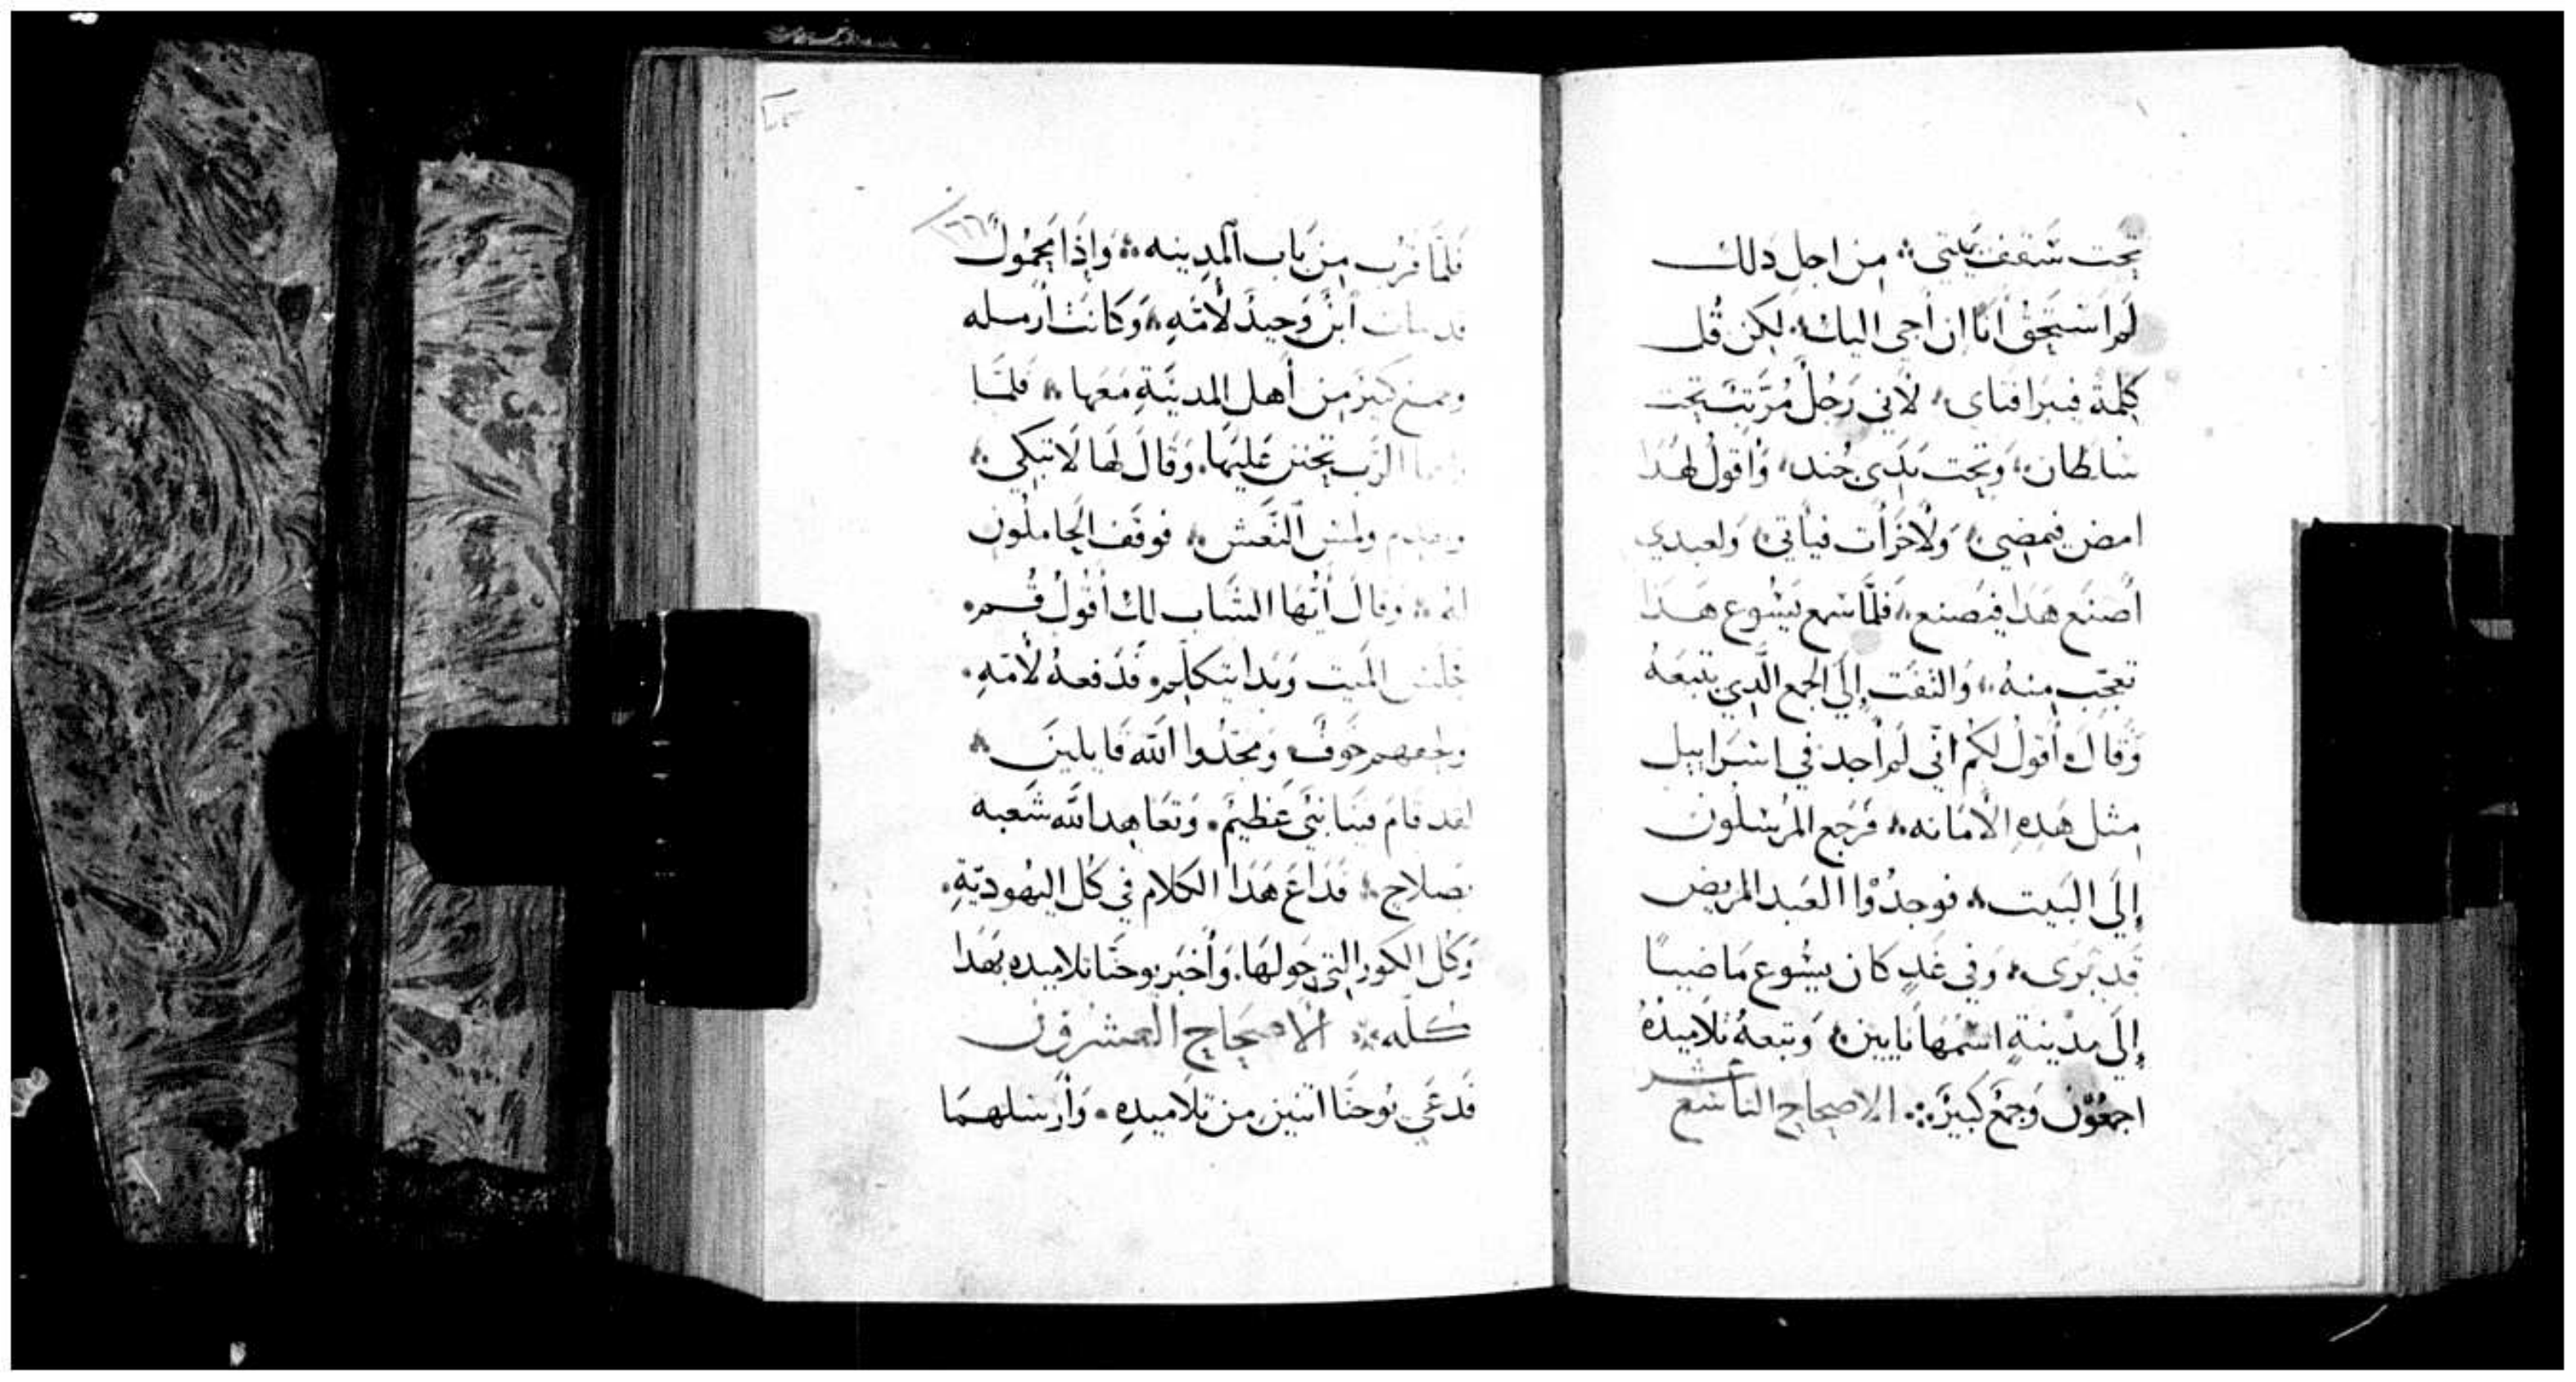 تحت سَقف بيتي من اجل دلك
لم استحق انا ان اجي اليك لكن قُل
كلمة فيبرا فتاي لأني رَجُل مُرَتب تحت
سلطان وَتحت يَدي جُند وَاقول لهَدَا
امض فيمضي وَلآخر أت فيأتي وَلعبدي
أصنَع هَدا فيصنع فلمَّا سَمع يَسُوع هَدَا
تعجّب منهُ وَالتفَت إلَى الجمع الَّدي يتبَعهُ
وَقال أقولُ لكم انّي لم أجد في اسرَاييل
مثل هَدِهِ الأمَانه فَرَجع المرسَلون
إلَى البَيت فوجدُوا العَبد المريض
قد بَرَى وَفي غَدٍ كان يسُوع مَاضيًا
إلَى مدينةٍ اسمهَا نايين وَتبعهُ تلاميذهُ
اجمعُون وَجَمع كبيرَ الاصحاح التاسع
عشر
١٦٦
فَلمَّا قرُب من بَاب المدينه وَإذا محمُول
قد مات ابن وَحيدٌ لأمّهِ وَكانت أرمله
وجمع كبير من أهل المدينَةِ مَعَها فلمَّا
الرَّب تحنن عَليهَا وَقالَ لها لاَ تبكي
وتقدم ولمس النَّعش فوقف الحاملون
لهُ وقال أيُّهَا الشاب لك أقولُ قُم
فجلس الميت وَبَدا يتكلم فدَفعهُ لأمّهِ
خوفٌ وَمجّدُوا اللّه قايلينَ
لقد قامَ فينا نبَيّ عَظيم وَتعَاهد اللّه شعبه
بصلاح فدَاعَ هَدَا الكلام في كُل اليهوديّةِ
وَكل الكور التي حَولهَا وَأخبَر يوحنّا تلاميده بهَدا
كلّه الأصحاح العشرون
فدَعَي يُوحنّا اثنين من تلاَميدِهِ وَأرسَلهمَا